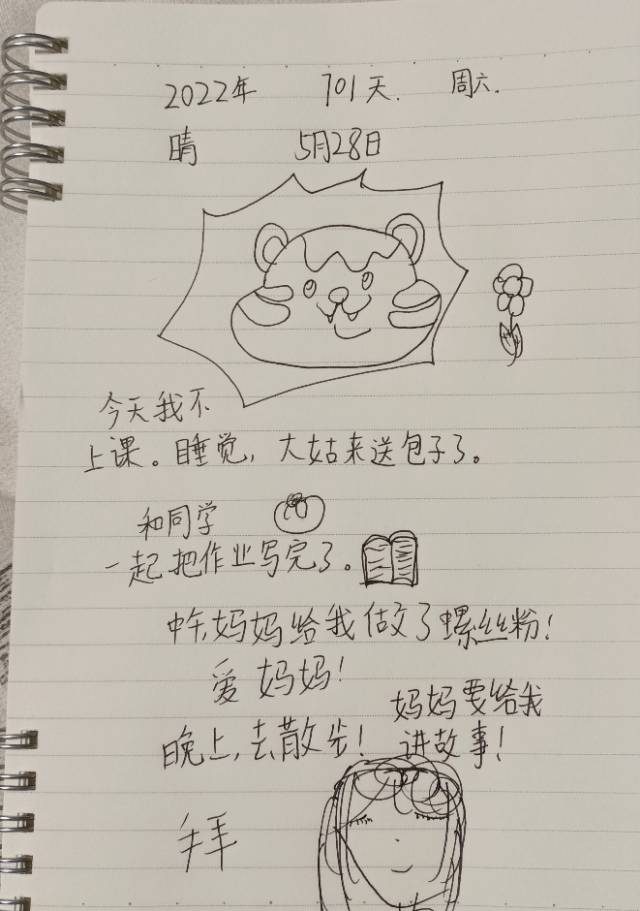 2022年 701天. 周六.
晴 5月28日
今天我不
上课。睡觉，大姑来送包子了。
和同学
一起把作业写完了。
中午妈妈给我做了螺丝粉！
爱妈妈！
妈妈要给我
晚上，去散步！ 讲故事！
拜